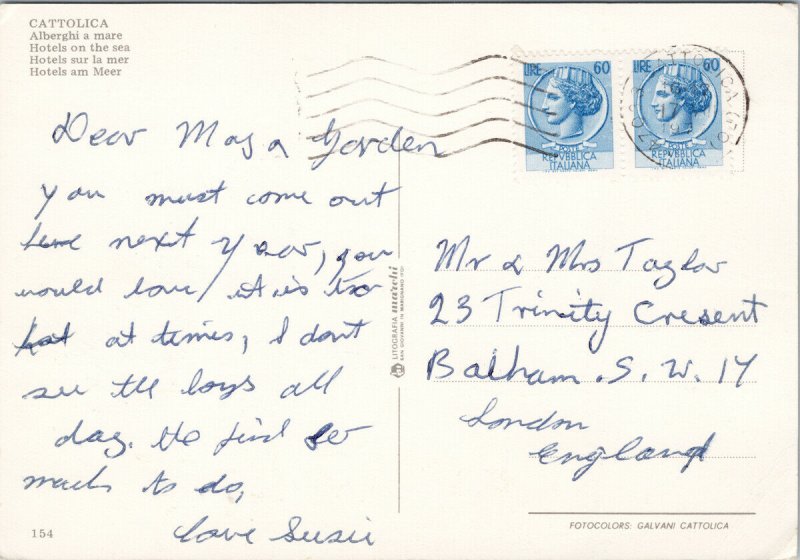 CATTOLICA
Alberghi a mare
Hotels on the sea
Hotels sur la mer
Hotels am Meer
LIRE 60
POSTE
REPVBBLICA
ITALIANA
LIRE 60
POSTE
REPVBBLICA
ITALIANA
CATTOLICA
Dear May a Gorden
you must come out
here next year, you
would love it it is too
hot at times, I dont
see the boys all
day. the find so
much to do,
Love Susie
LITOGRAFIA marchi
SAN GIOVANNI IN MARIGNANO (FO)
Mr & Mrs Taylor
23 Trinity Cresent
Balham. S. W. 17
London
England
154
FOTOCOLORS: GALVANI CATTOLICA